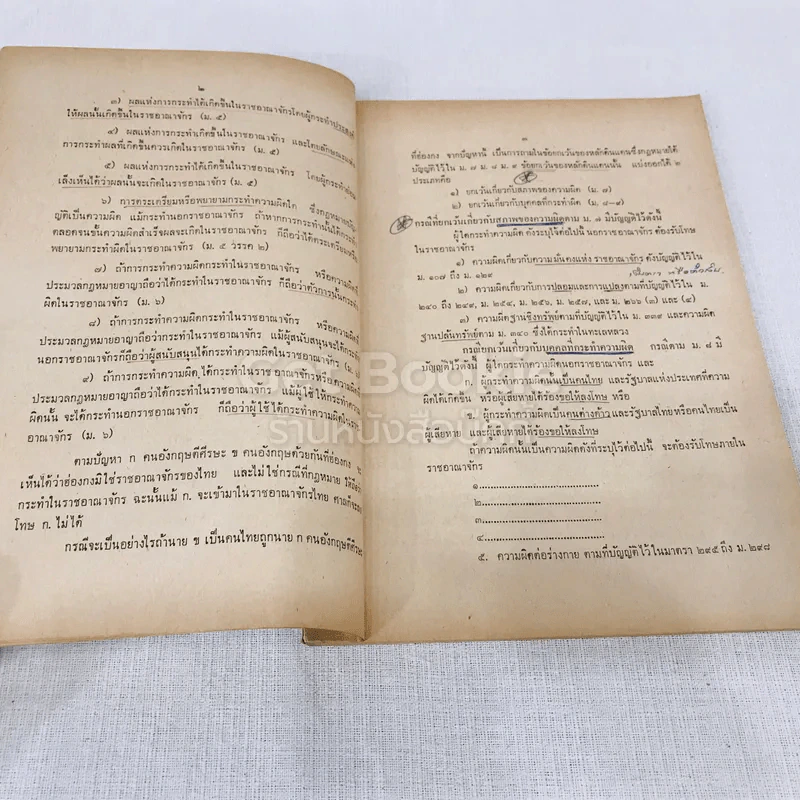 ๒
๓) ผลแห่งการกระทำได้เกิดขึ้นในราชอาณาจักรโดยผู้กระทำประสงค์
ให้ผลนั้นเกิดขึ้นในราชอาณาจักร (ม. ๕)
๔) ผลแห่งการกระทำเกิดขึ้นในราชอาณาจักร และโดยลักษณะแห่ง
การกระทำผลที่เกิดขึ้นควรเกิดในราชอาณาจักร (ม. ๕)
๕) ผลแห่งการกระทำได้เกิดขึ้นในราชอาณาจักร โดยผู้กระทำ
เล็งเห็นได้ว่าผลนั้นจะเกิดในราชอาณาจักร (ม. ๕)
๖) การตระเตรียมหรือพยายามกระทำความผิดใด ซึ่งกฎหมาย
ญัติเป็นความผิด แม้กระทำนอกราชอาณาจักร ถ้าหากการกระทำนั้นได้กระทำ
ตลอดจนขั้นความผิดสำเร็จผลจะเกิดในราชอาณาจักร ก็ถือว่าได้ตระเตรียมหรือ
พยายามกระทำผิดในราชอาณาจักร (ม. ๕ วรรค ๒)
๗) ถ้าการกระทำความผิดในราชอาณาจักร หรือความผิด
ประมวลกฎหมายอาญาถือว่าได้กระทำในราชอาณาจักร ก็ถือว่าตัวการนั้นกระทำ
ผิดในราชอาณาจักร (ม. ๖)
๘) ถ้าการกระทำความผิดในราชอาณาจักร หรือความผิด
ประมวลกฎหมายอาญาถือว่ากระทำในราชอาณาจักร แม้ผู้สนับสนุนจะได้กระทำ
นอกราชอาณาจักรก็ถือว่าผู้สนับสนุนได้กระทำความผิดในราชอาณาจักร (ม.
๙) ถ้าการกระทำความผิดได้กระทำในราชอาณาจักรหรือความผิด
ประมวลกฎหมายอาญาถือว่าได้กระทำในราชอาณาจักร แม้ผู้ใช้ให้กระทำความ
ผิดนั้น จะได้กระทำนอกราชอาณาจักร ก็ถือว่าผู้ใช้ได้กระทำความผิดในราช
อาณาจักร (ม. ๖)
ตามปัญหา ก คนอังกฤษตีศีรษะ ข คนอังกฤษด้วยกันที่ฮ่องกง จะ
เห็นได้ว่าฮ่องกงมิใช่ราชอาณาจักรของไทย และไม่ใช่กรณีที่กฎหมาย ให้ถือว่า
กระทำในราชอาณาจักร ฉะนั้นแม้ ก. จะเข้ามาในราชอาณาจักรไทย ศาลก็จะลง
โทษ ก. ไม่ได้
กรณีจะเป็นอย่างไรถ้านาย ข เป็นคนไทยถูกนาย ก คนอังกฤษตีศีรษะ
๓
ที่ฮ่องกง จากปัญหานี้ เป็นการถามในข้อยกเว้นของหลักดินแดนซึ่งกฎหมายได้
บัญญัติไว้ใน ม. ๗ ม. ๘ ม. ๙ ข้อยกเว้นของหลักดินแดนนั้น แบ่งออกได้ ๒
ประเภทคือ
๑) ยกเว้นเกี่ยวกับสภาพของความผิด (ม. ๗)
๒) ยกเว้นเกี่ยวกับบุคคลที่กระทำผิด (ม. ๘-๙)
กรณีที่ยกเว้นเกี่ยวกับสภาพของความผิดตาม ม. ๘ มีบัญญัติไว้ดังนี้
ผู้ใดกระทำความผิด ดังระบุไว้ต่อไปนี้ นอกราชอาณาจักร ต้องรับโทษ
ในราชอาณาจักร
๑) ความผิดเกี่ยวกับความมั่นคงแห่ง ราชอาณาจักร ดังบัญญัติไว้ใน
ม. ๑๐๗ ถึง ม. ๑๒๙
๒) ความผิดเกี่ยวกับการปลอมและการแปลงตามที่บัญญัติไว้ใน ม.
๒๔๐ ถึง ๒๔๙, ม. ๒๕๔, ม. ๒๕๖, ม. ๒๕๗, และ ม. ๒๖๖ (๓) และ (๔)
๓) ความผิดฐานชิงทรัพย์ตามที่บัญญัติไว้ใน ม. ๓๓๙ และความผิด
ฐานปล้นทรัพย์ตาม ม. ๓๔๐ ซึ่งได้กระทำในทะเลหลวง
กรณียกเว้นเกี่ยวกับบุคคลที่กระทำความผิด กรณีตาม ม. ๘ มี
บัญญัติไว้ดังนี้ ผู้ใดกระทำความผิดนอกราชอาณาจักร และ
ก. ผู้กระทำความผิดนั้นเป็นคนไทย และรัฐบาลแห่งประเทศที่ความ
ผิดได้เกิดขึ้น หรือผู้เสียหายได้ร้องขอให้ลงโทษ หรือ
ข. ผู้กระทำความผิดเป็นคนต่างด้าวและรัฐบาลไทยหรือคนไทยเป็น
ผู้เสียหาย และผู้เสียหายได้ร้องขอให้ลงโทษ
ถ้าความผิดนั้นเป็นความผิดดังที่ระบุไว้ต่อไปนี้ จะต้องรับโทษภายใน
ราชอาณาจักร
๑..............................
๒..............................
๓..............................
๔..............................
๕. ความผิดต่อร่างกาย ตามที่บัญญัติไว้ในมาตรา ๒๙๕ ถึง ม. ๒๙๘